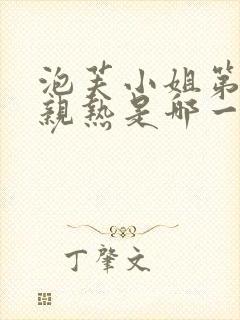 泡芙小姐第
親热是哪一
丁肇文